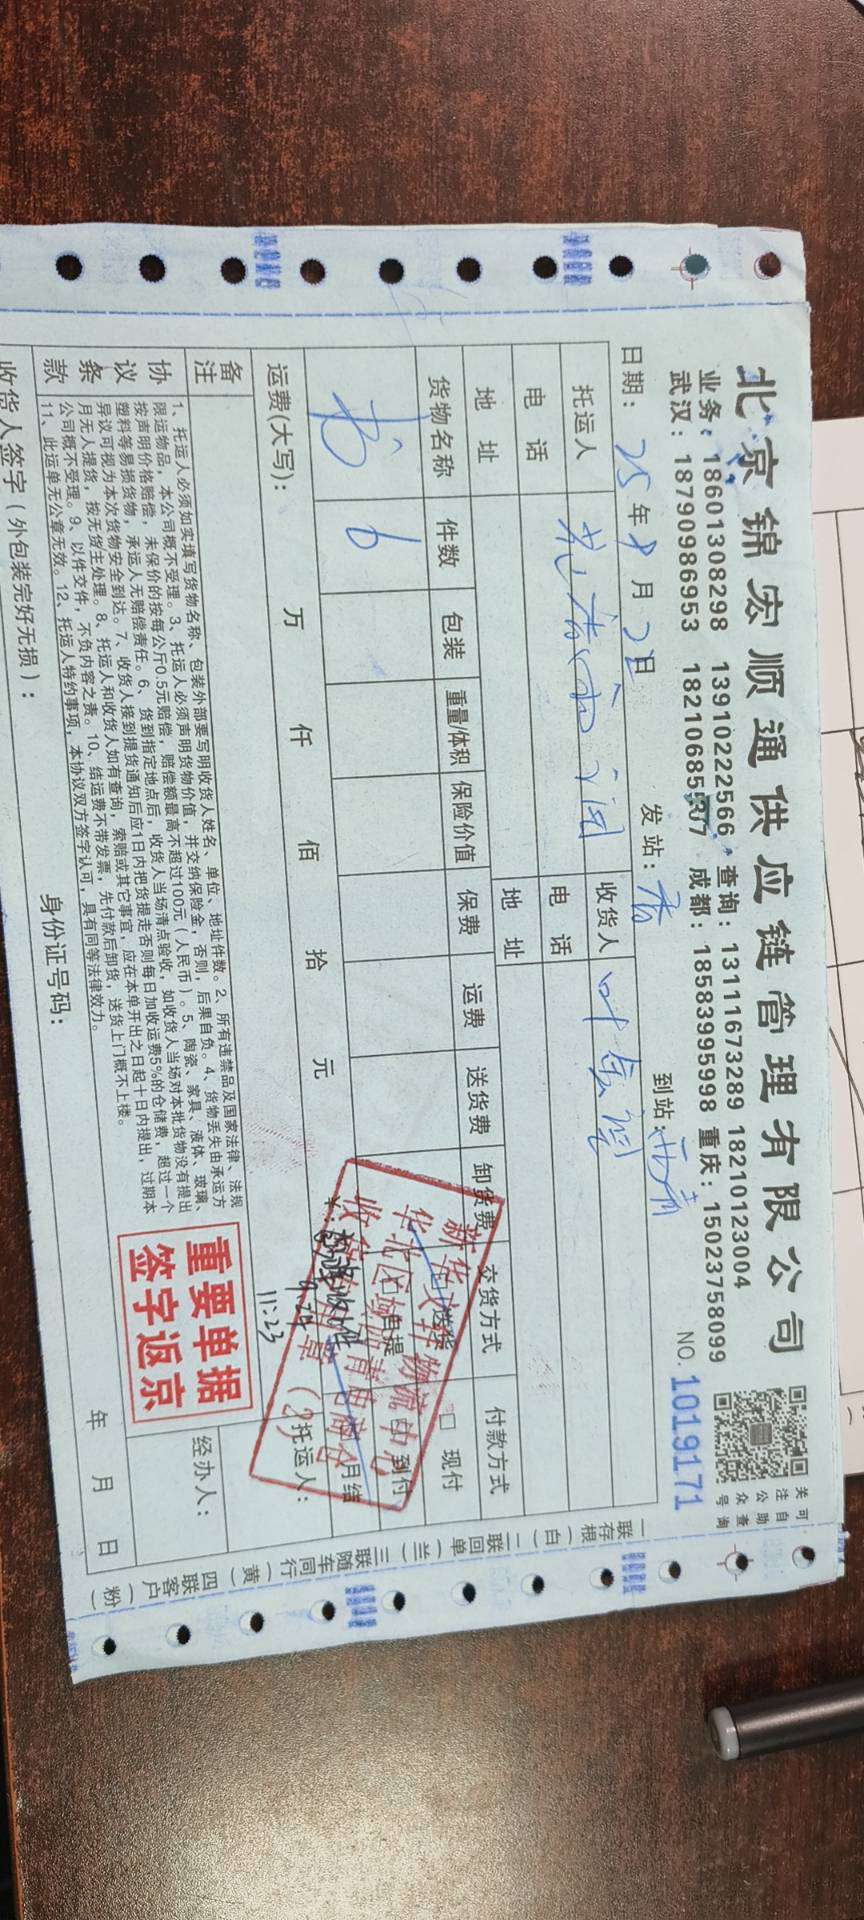 北京锦宏顺通供应链管理有限公司
业务：18601308298 13910222566 查询：13111673289 18210123004
武汉：18790986953 18210685 7 成都：18583995998 重庆：15023758099
可自助查询
关注公众号
NO. 1019171
日期：25年8月2日 发站： 到站：
托运人 收货人
电话 电话
地址 地址
货物名称 件数 包装 重量/体积 保险价值 保费 运费 送货费 卸货费 交货方式 付款方式
书 6 送货 自提 □现付 □到付 月结
运费(大写)： 万 仟 佰 拾 元 ¥：
新华文轩物流中心
华北区域
收货专用章 (2)
11:23
托运人：
备注
重要单据
签字返京
经办人：
协议条款
1、托运人必须如实填写货物名称、包装外部要写明收货人姓名、单位、地址件数。2、所有违禁品及国家法律、法规
限运物品，本公司概不受理。3、托运人必须声明货物价值，并交纳保险金，否则，后果自负。4、货物丢失由承运方
按声明价格赔偿，未保价的按每公斤0.5元赔偿，赔偿额最高不超过100元（人民币）。5、陶瓷、家具、液体、玻璃、
塑料等易损货物，承运人无赔偿责任。6、货到指定地点后，收货人当场清点验收，如收货人当场对本批货物没有提出
异议可视为本次货物安全到达。7、收货人接到提货通知后应1日内把货提走否则每日加收运费5%的仓储费，超过一个
月无人提货，按无货主处理。8、托运人和收货人如有查询，索赔或其它事宜，应在本单开出之日起十日内提出，过期本
公司概不受理。9、以件交件，不负内容之责。10、结运费不带发票，先付款后卸货，送货上门概不上楼。
11、此运单无公章无效。12、托运人特约事项，本协议双方签字认可，具有同等法律效力。
收货人签字（外包装完好无损）： 身份证号码： 年 月 日
一联存根（白）二联回单（兰）三联随车同行（黄）四联客户（粉）